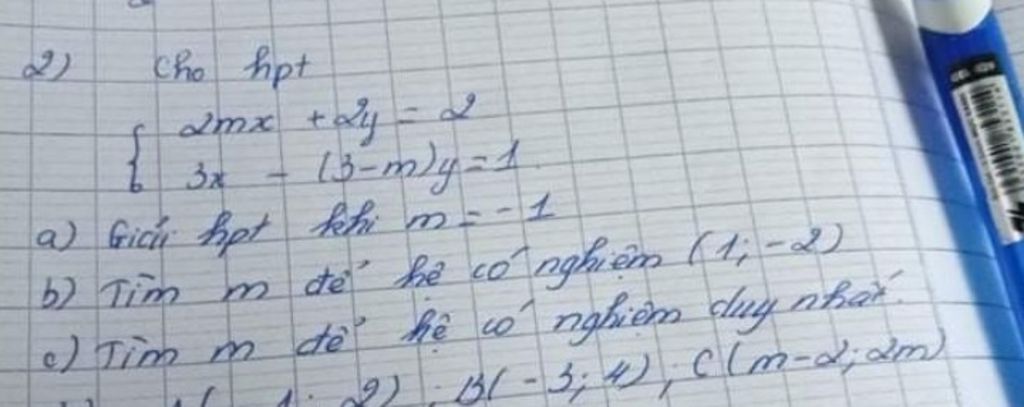 2) Cho hpt
{ 2mx + 2y = 2
3x - (3-m)y = 1
a) Giải hpt khi m = -1
b) Tìm m để hệ có nghiệm (1; -2)
c) Tìm m để hệ có nghiệm duy nhất.
B(-3; 4), C(m-2; 2m)